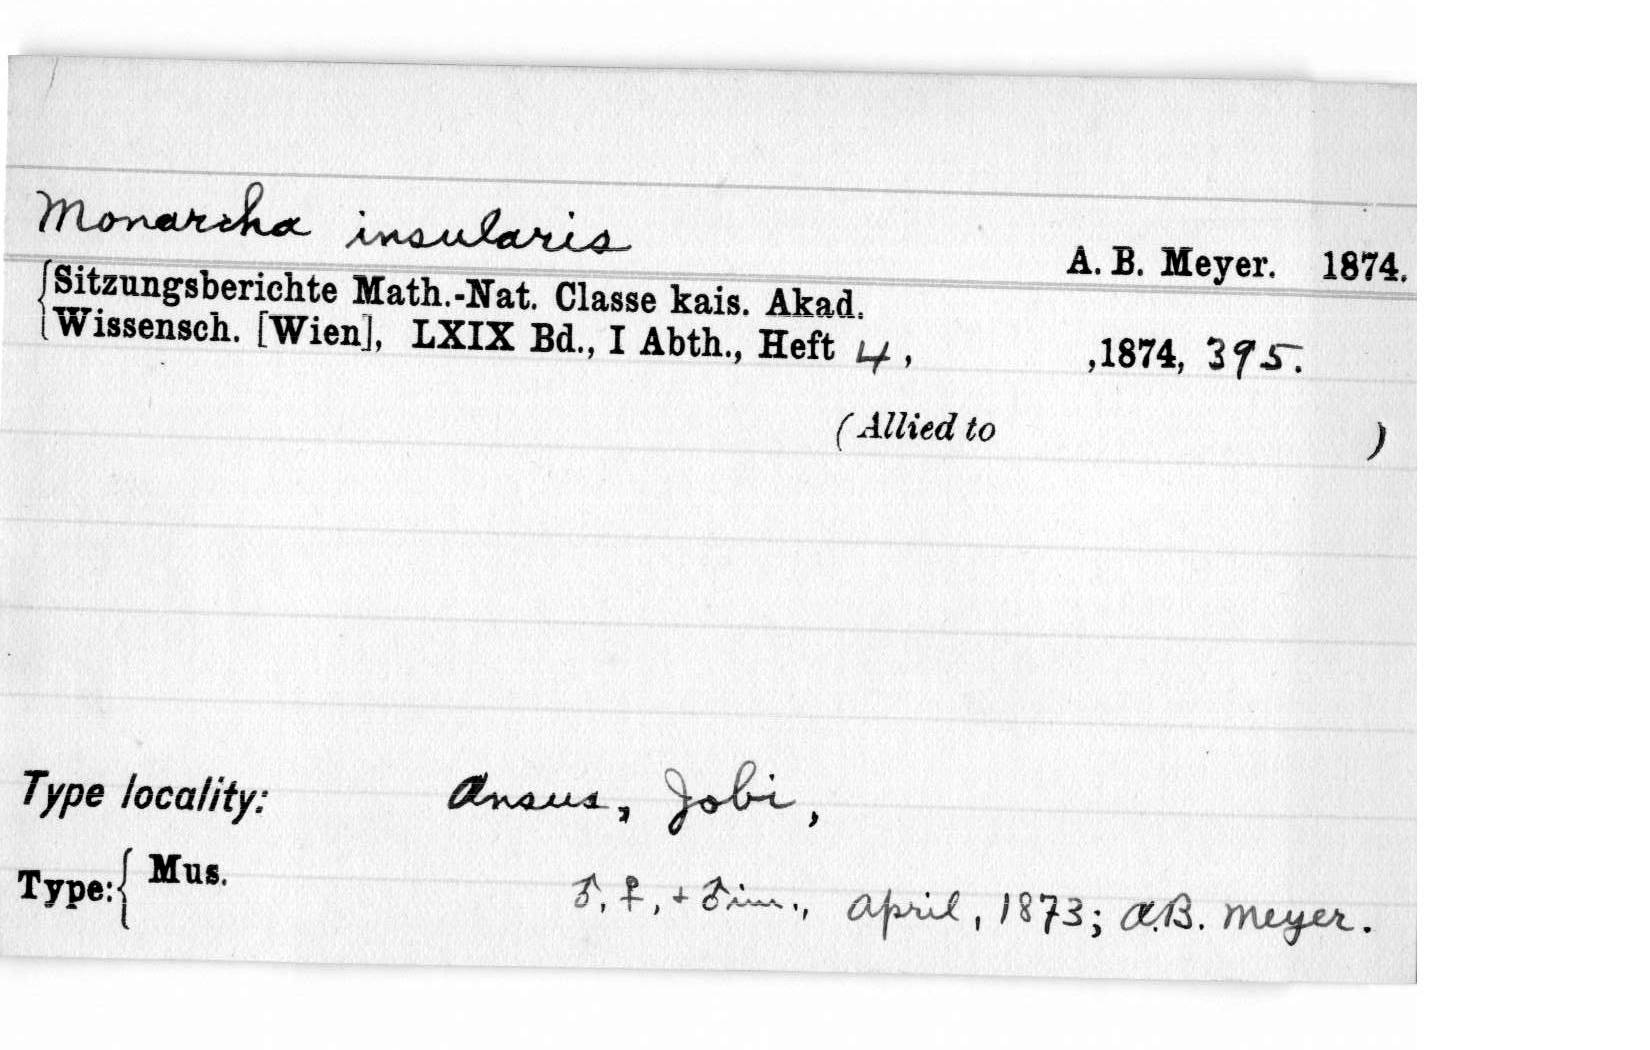 Monarcha insularis A. B. Meyer. 1874.
{Sitzungsberichte Math.-Nat. Classe kais. Akad.
Wissensch. [Wien], LXIX Bd., I Abth., Heft 4, ,1874, 395.
(Allied to )
Type locality: Ansus, Jobi,
Type:{ Mus. ♂, ♀, + ♂ im., April, 1873; A.B. Meyer.